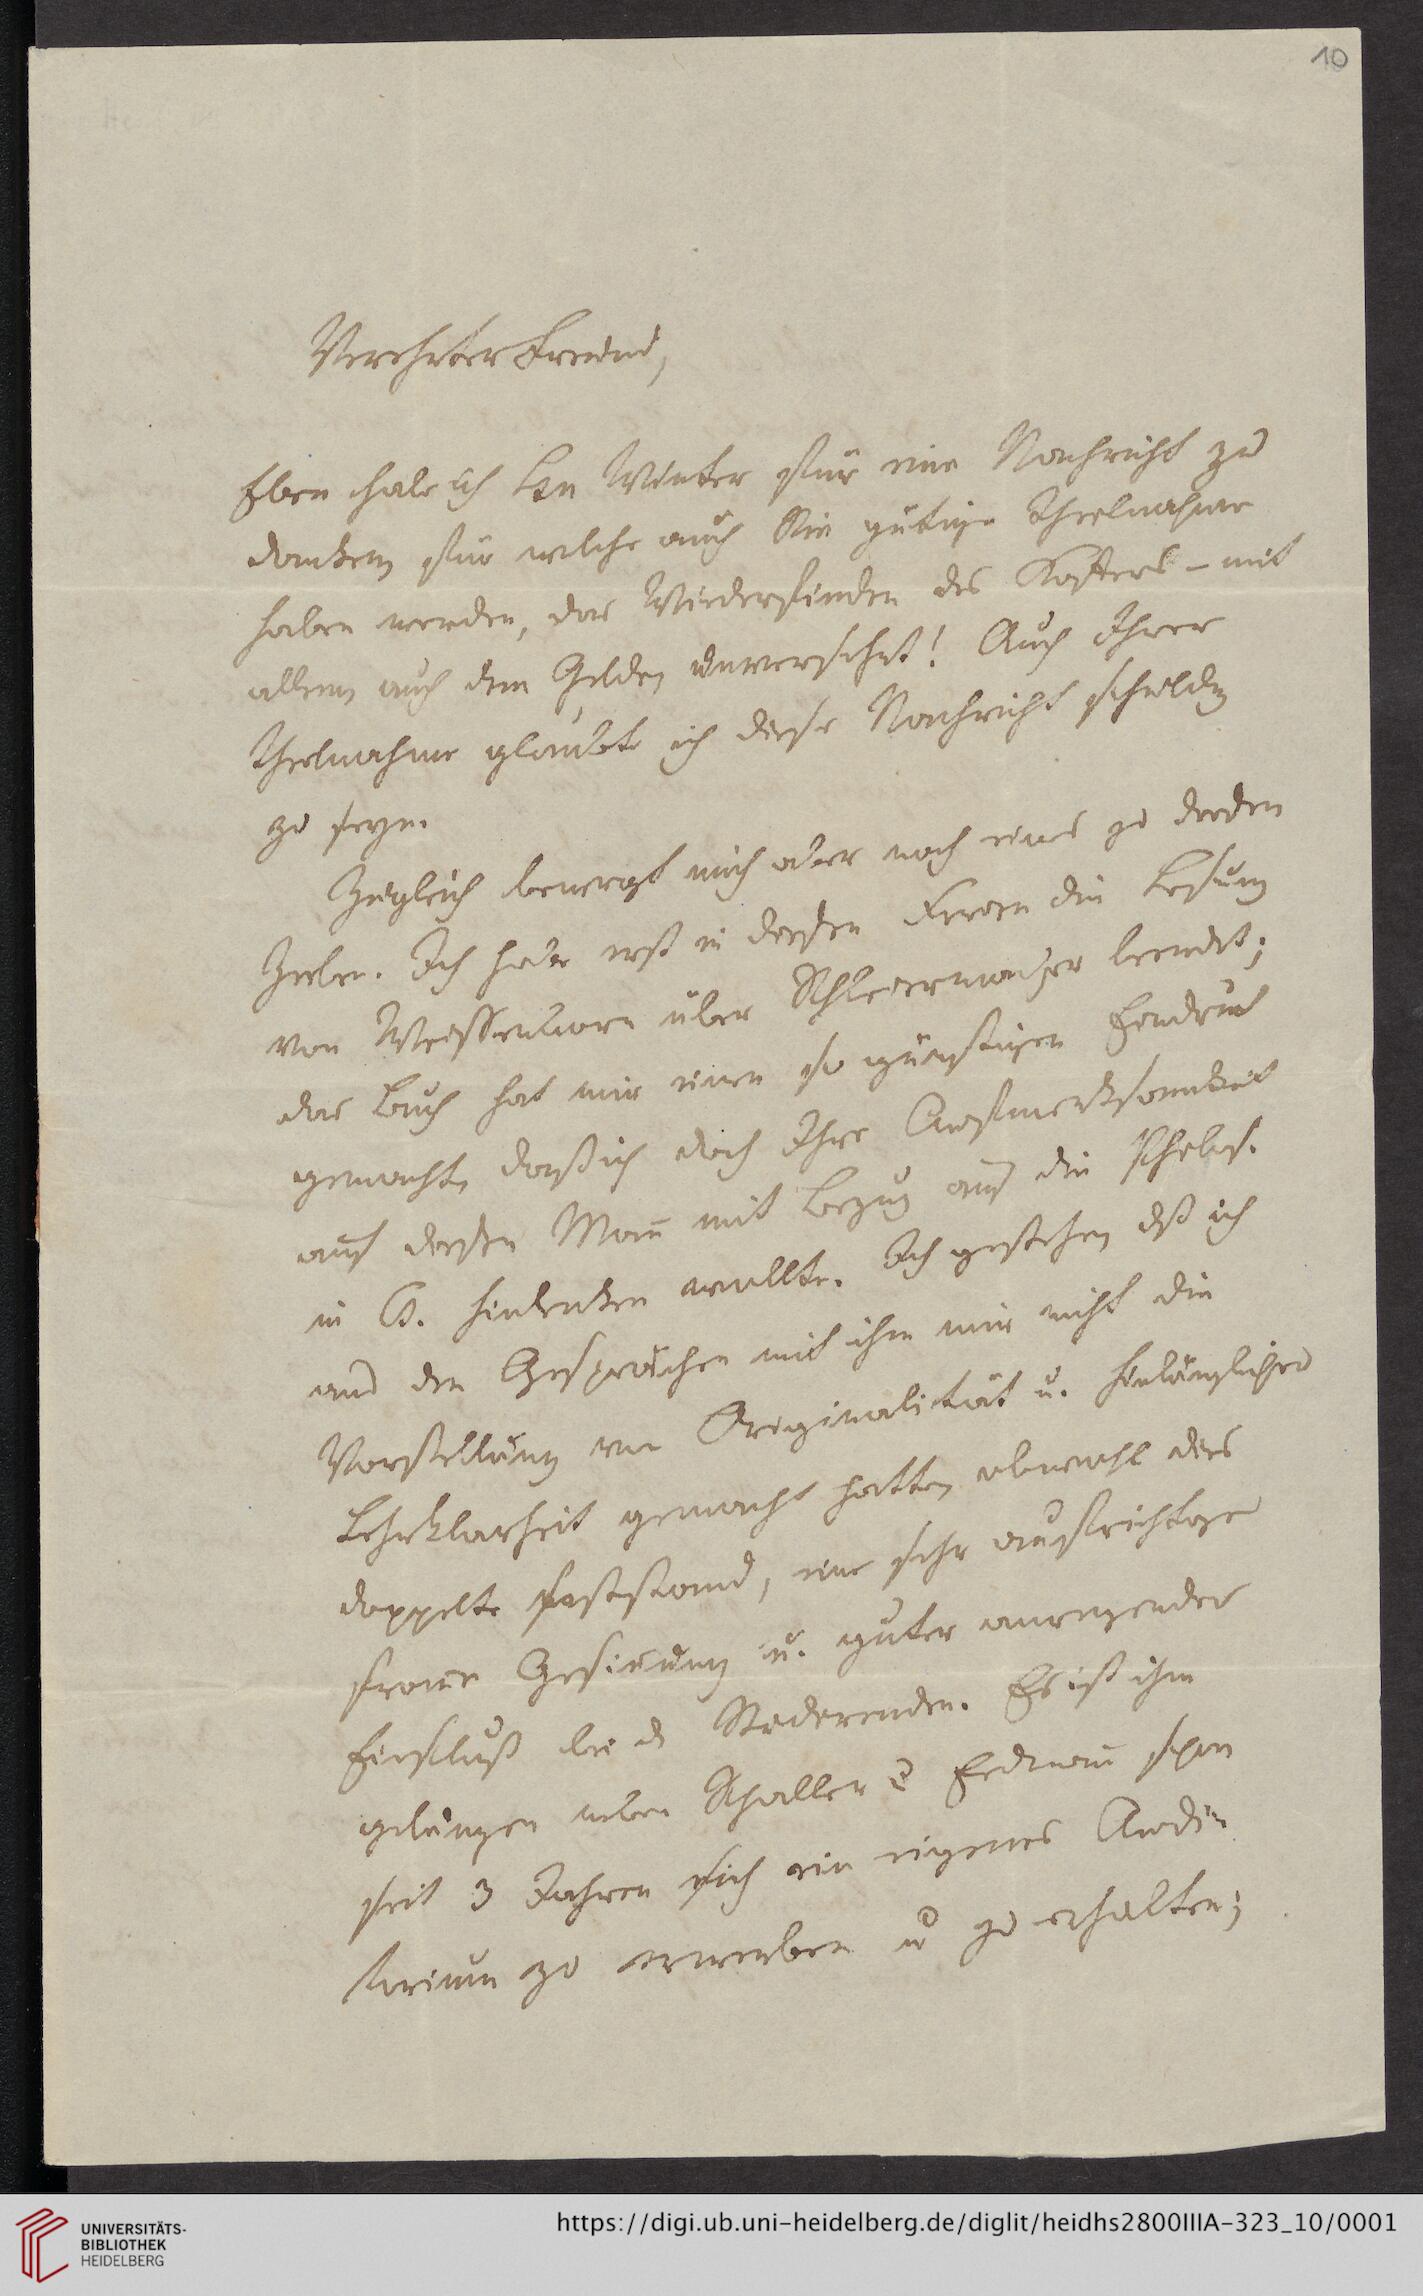 10
Verehrter Freund,
Eben habe ich Hrn Winter für eine Nachricht zu
danken, für welche auch Sie gütige Theilnahme
haben werden, das Wiederfinden des Koffers – mit
allem, auch dem Gelde, unversehrt! Auch Ihrer
Theilnahme glaubte ich diese Nachricht schuldig
zu seyn.
Zugleich bewegt mich aber noch eines zu diesen
Zeilen. Ich habe erst in diesen Ferien die Lesung
von Weissenborn über Schleiermacher beendet;
das Buch hat mir einen so günstigen Eindruck
gemacht, daß ich doch Ihre Aufmerksamkeit
auf diesen Mann mit Bezug auf die Philos.
in B. hinlenken wollte. Ich gestehe, dß ich
aus den Gesprächen mit ihm mir nicht die
Vorstellung von Originalität u. hinlänglicher
Lehrklarheit gemacht hatte, obwohl dies
doppelte feststand, eine sehr aufrichtige
fromme Gesinnung u. guter anregender
Einfluß bei d Studierenden. Es ist ihm
gelungen neben Schaller u Erdmann schon
seit 3 Jahren sich ein eigenes Audi-
torium zu erwerben u zu erhalten;
UNIVERSITÄTS-
BIBLIOTHEK
HEIDELBERG
https://digi.ub.uni-heidelberg.de/diglit/heidhs2800IIIA-323_10/0001